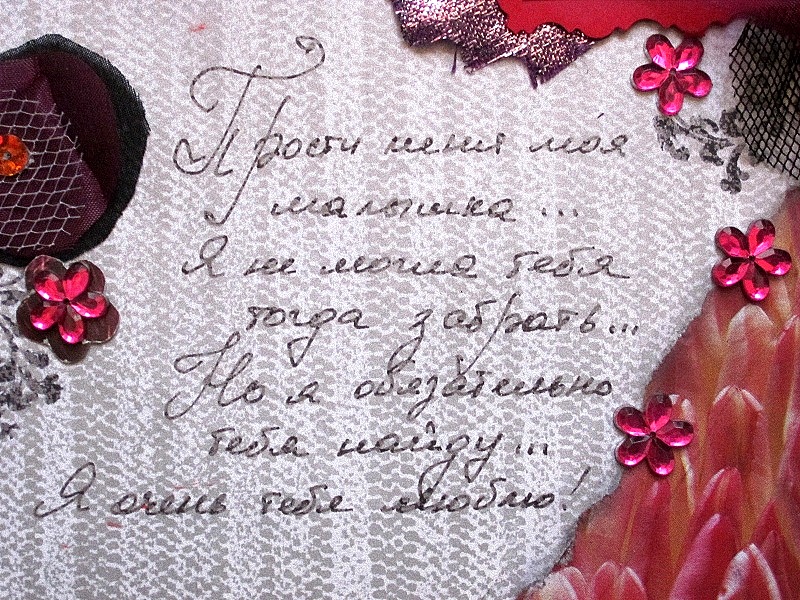 Прости меня моя
малышка...
Я не могла тебя
тогда забрать...
Но я обязательно
тебя найду...
Я очень тебя люблю!